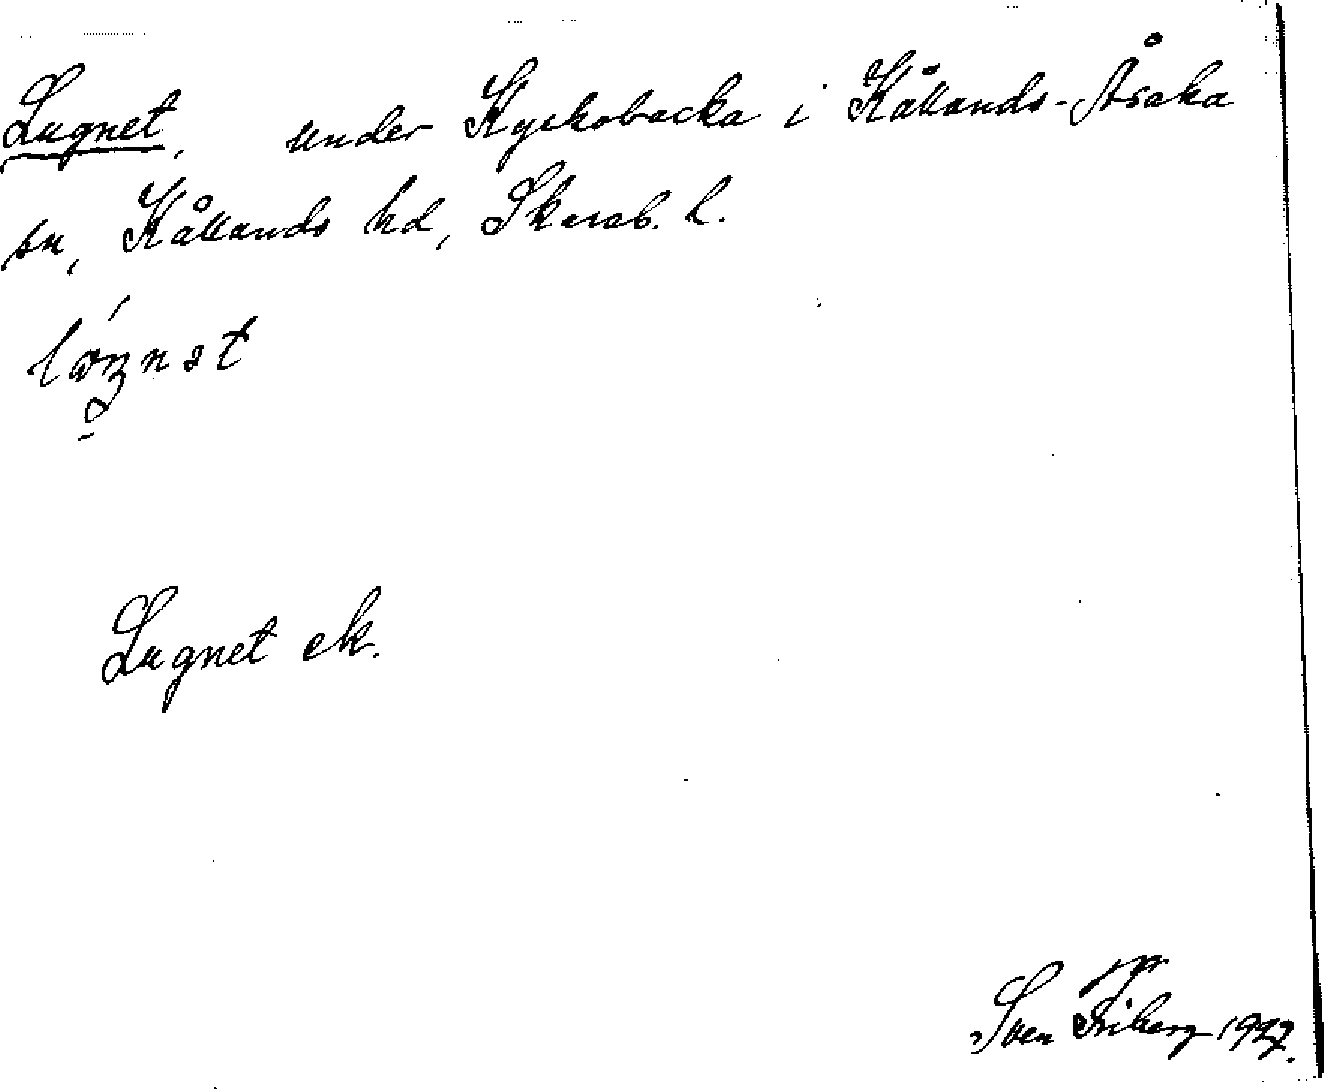 Lugnet, under Kyckobacka i Kållands-Åsaka
sn, Kållands hd, Skarab. l.
Lugnet ek.
Sven Friberg 1927.